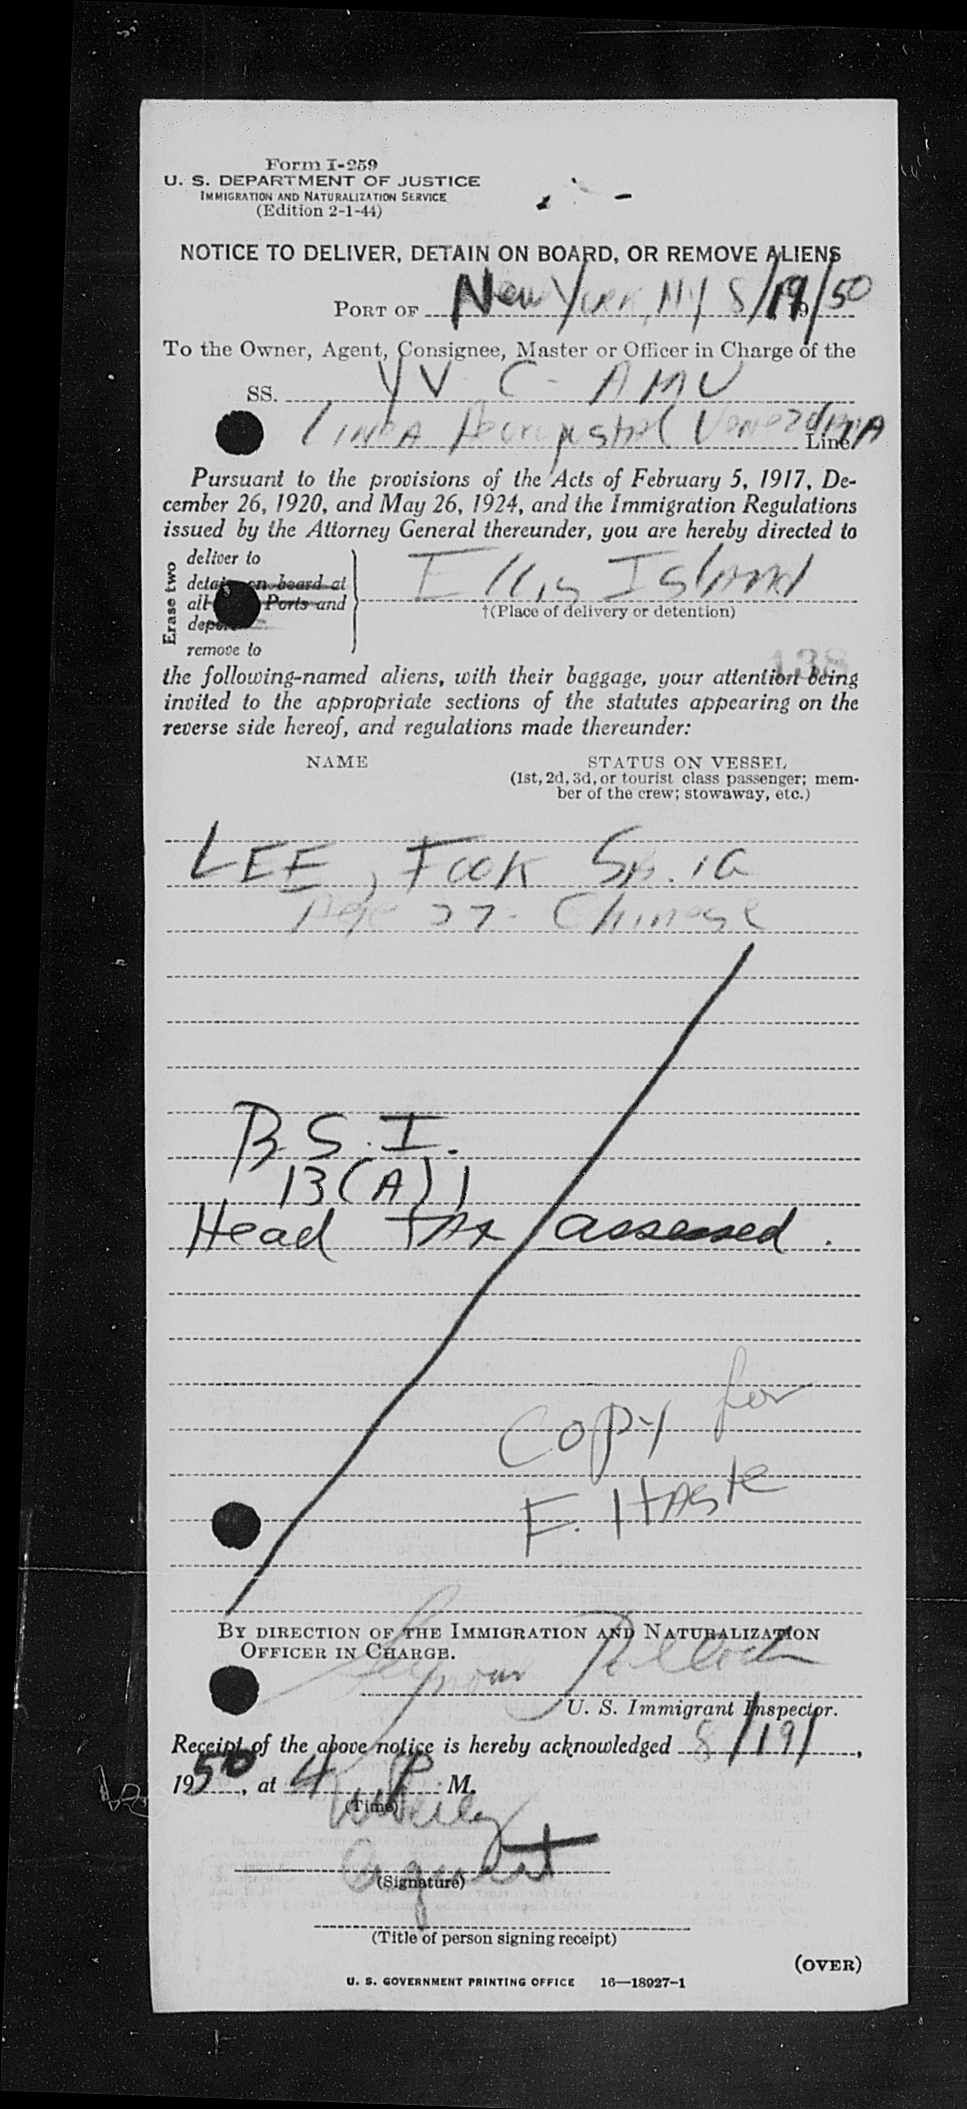 Form I-259
U. S. DEPARTMENT OF JUSTICE
IMMIGRATION AND NATURALIZATION SERVICE
(Edition 2-1-44)
NOTICE TO DELIVER, DETAIN ON BOARD, OR REMOVE ALIENS
PORT OF New York, NY 8/19/50
To the Owner, Agent, Consignee, Master or Officer in Charge of the
SS. YV C-AMU
Linea Aeropostal Venezolana Line
Pursuant to the provisions of the Acts of February 5, 1917, De-
cember 26, 1920, and May 26, 1924, and the Immigration Regulations
issued by the Attorney General thereunder, you are hereby directed to
Erase two
deliver to
detain on board at
all Ports and
deport
remove to
Ellis Island
†(Place of delivery or detention)
138
the following-named aliens, with their baggage, your attention being
invited to the appropriate sections of the statutes appearing on the
reverse side hereof, and regulations made thereunder:
NAME STATUS ON VESSEL
(1st, 2d, 3d, or tourist class passenger; mem-
ber of the crew; stowaway, etc.)
LEE, FOOK
Age 27 - Chinese
B.S.I.
13(A)1
Head tax assessed.
Copy for
F. Haste
BY DIRECTION OF THE IMMIGRATION AND NATURALIZATION
OFFICER IN CHARGE.
Seymour Pollock
U. S. Immigrant Inspector.
Receipt of the above notice is hereby acknowledged 8/19/,
1950, at 4 P. M.
(Time)
Agent
(Signature)
(Title of person signing receipt)
(OVER)
U. S. GOVERNMENT PRINTING OFFICE 16—18927-1